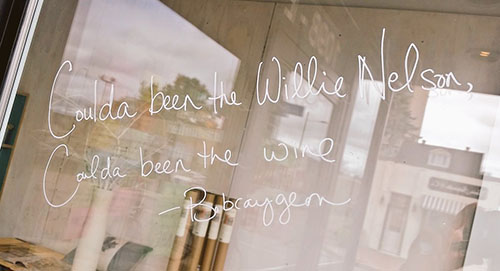 Coulda been the Willie Nelson,
Coulda been the wine
- Bobcaygeon